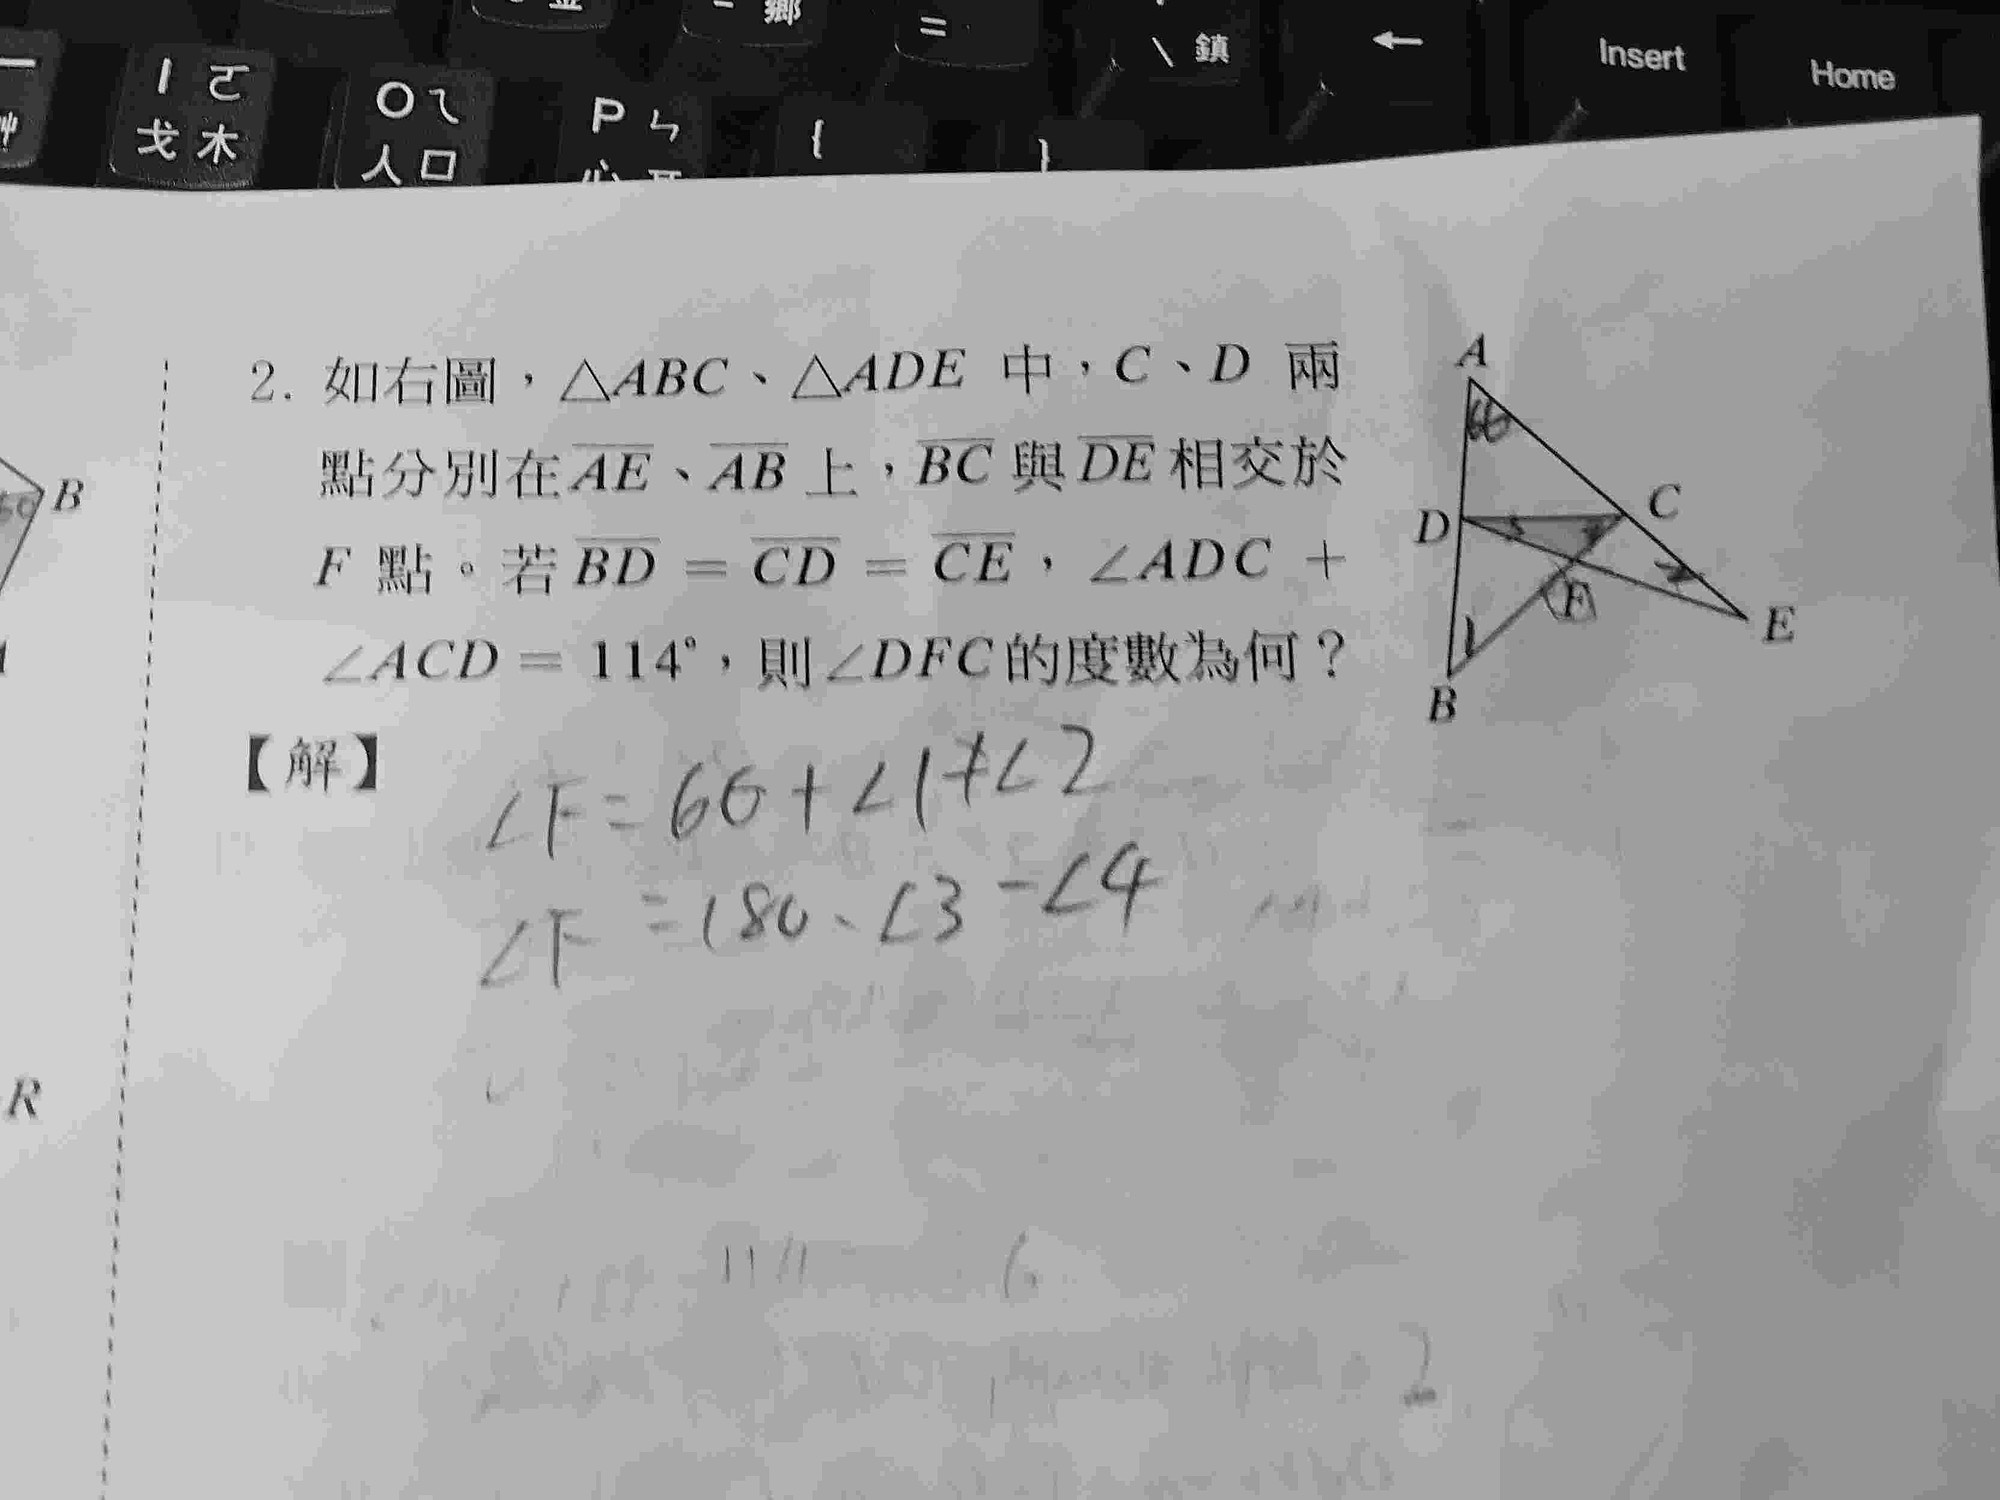 金
鄉
=
\ 鎮
←
Insert
Home
I ㄛ
戈 木
O ㄟ
人 口
P ㄣ
心
{
}
2. 如右圖,△ABC、△ADE 中,C、D 兩
點分別在AE、AB上,BC與DE相交於
F 點。若BD = CD = CE,∠ADC +
∠ACD = 114°,則∠DFC的度數為何?
【解】
∠F = 66 + ∠1 + ∠2
∠F = 180 - ∠3 - ∠4
A
66
C
D
F
1
E
B
B
R
2